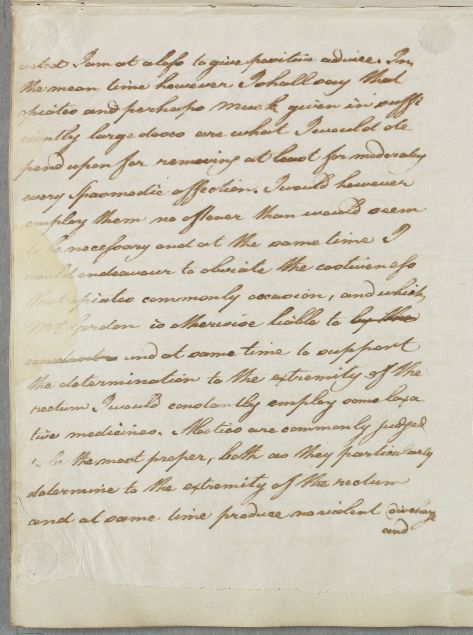 acted I am at a loss to give positive advice. In
the mean time however I shall say that
opiates and perhaps Musk given in suffi
ciently large doses are what I would de
pend upon for removing at least for moderating
every Spasmodic affection. I would however
employ them no oftener than would seem
to be necessary and at the same time I
would endeavour to obviate the costiveness
that opiates commonly occasion, and which
Mr Gordon is otherwise liable to by the
and at same time to support
the determination to the extremity of the
rectum I would constantly employ some laxa
tive medicines. Aloetics are commonly judged
to be the most proper, both as they particularly
determine to the extremity of the rectum
and at same time produce no violent discharge
and